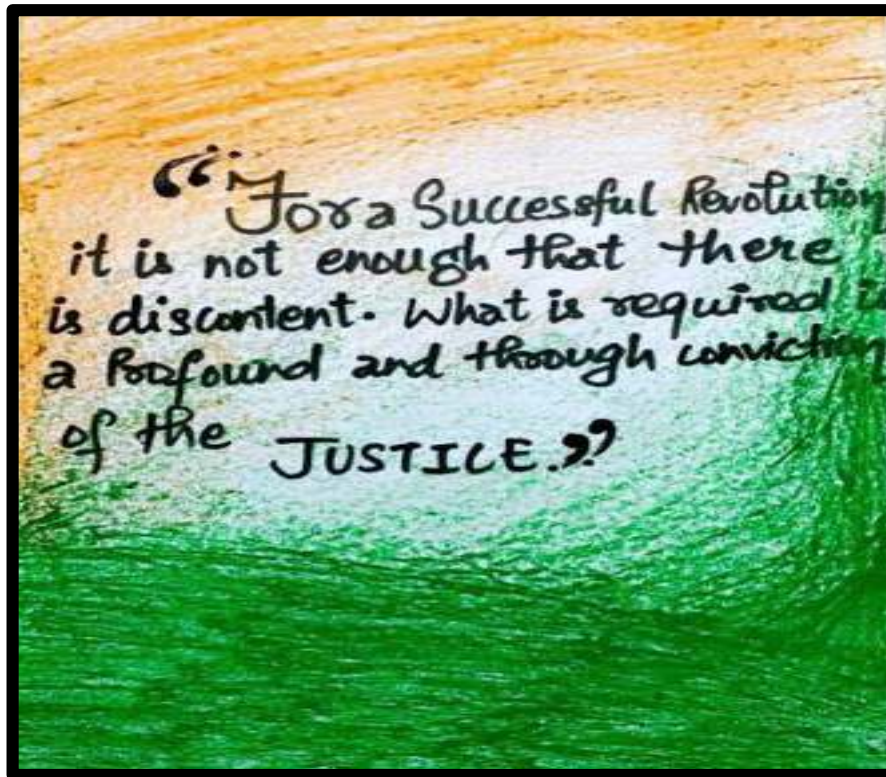 “For a Successful Revolution
it is not enough that there
is discontent. What is required is
a Profound and through conviction
of the JUSTICE.”